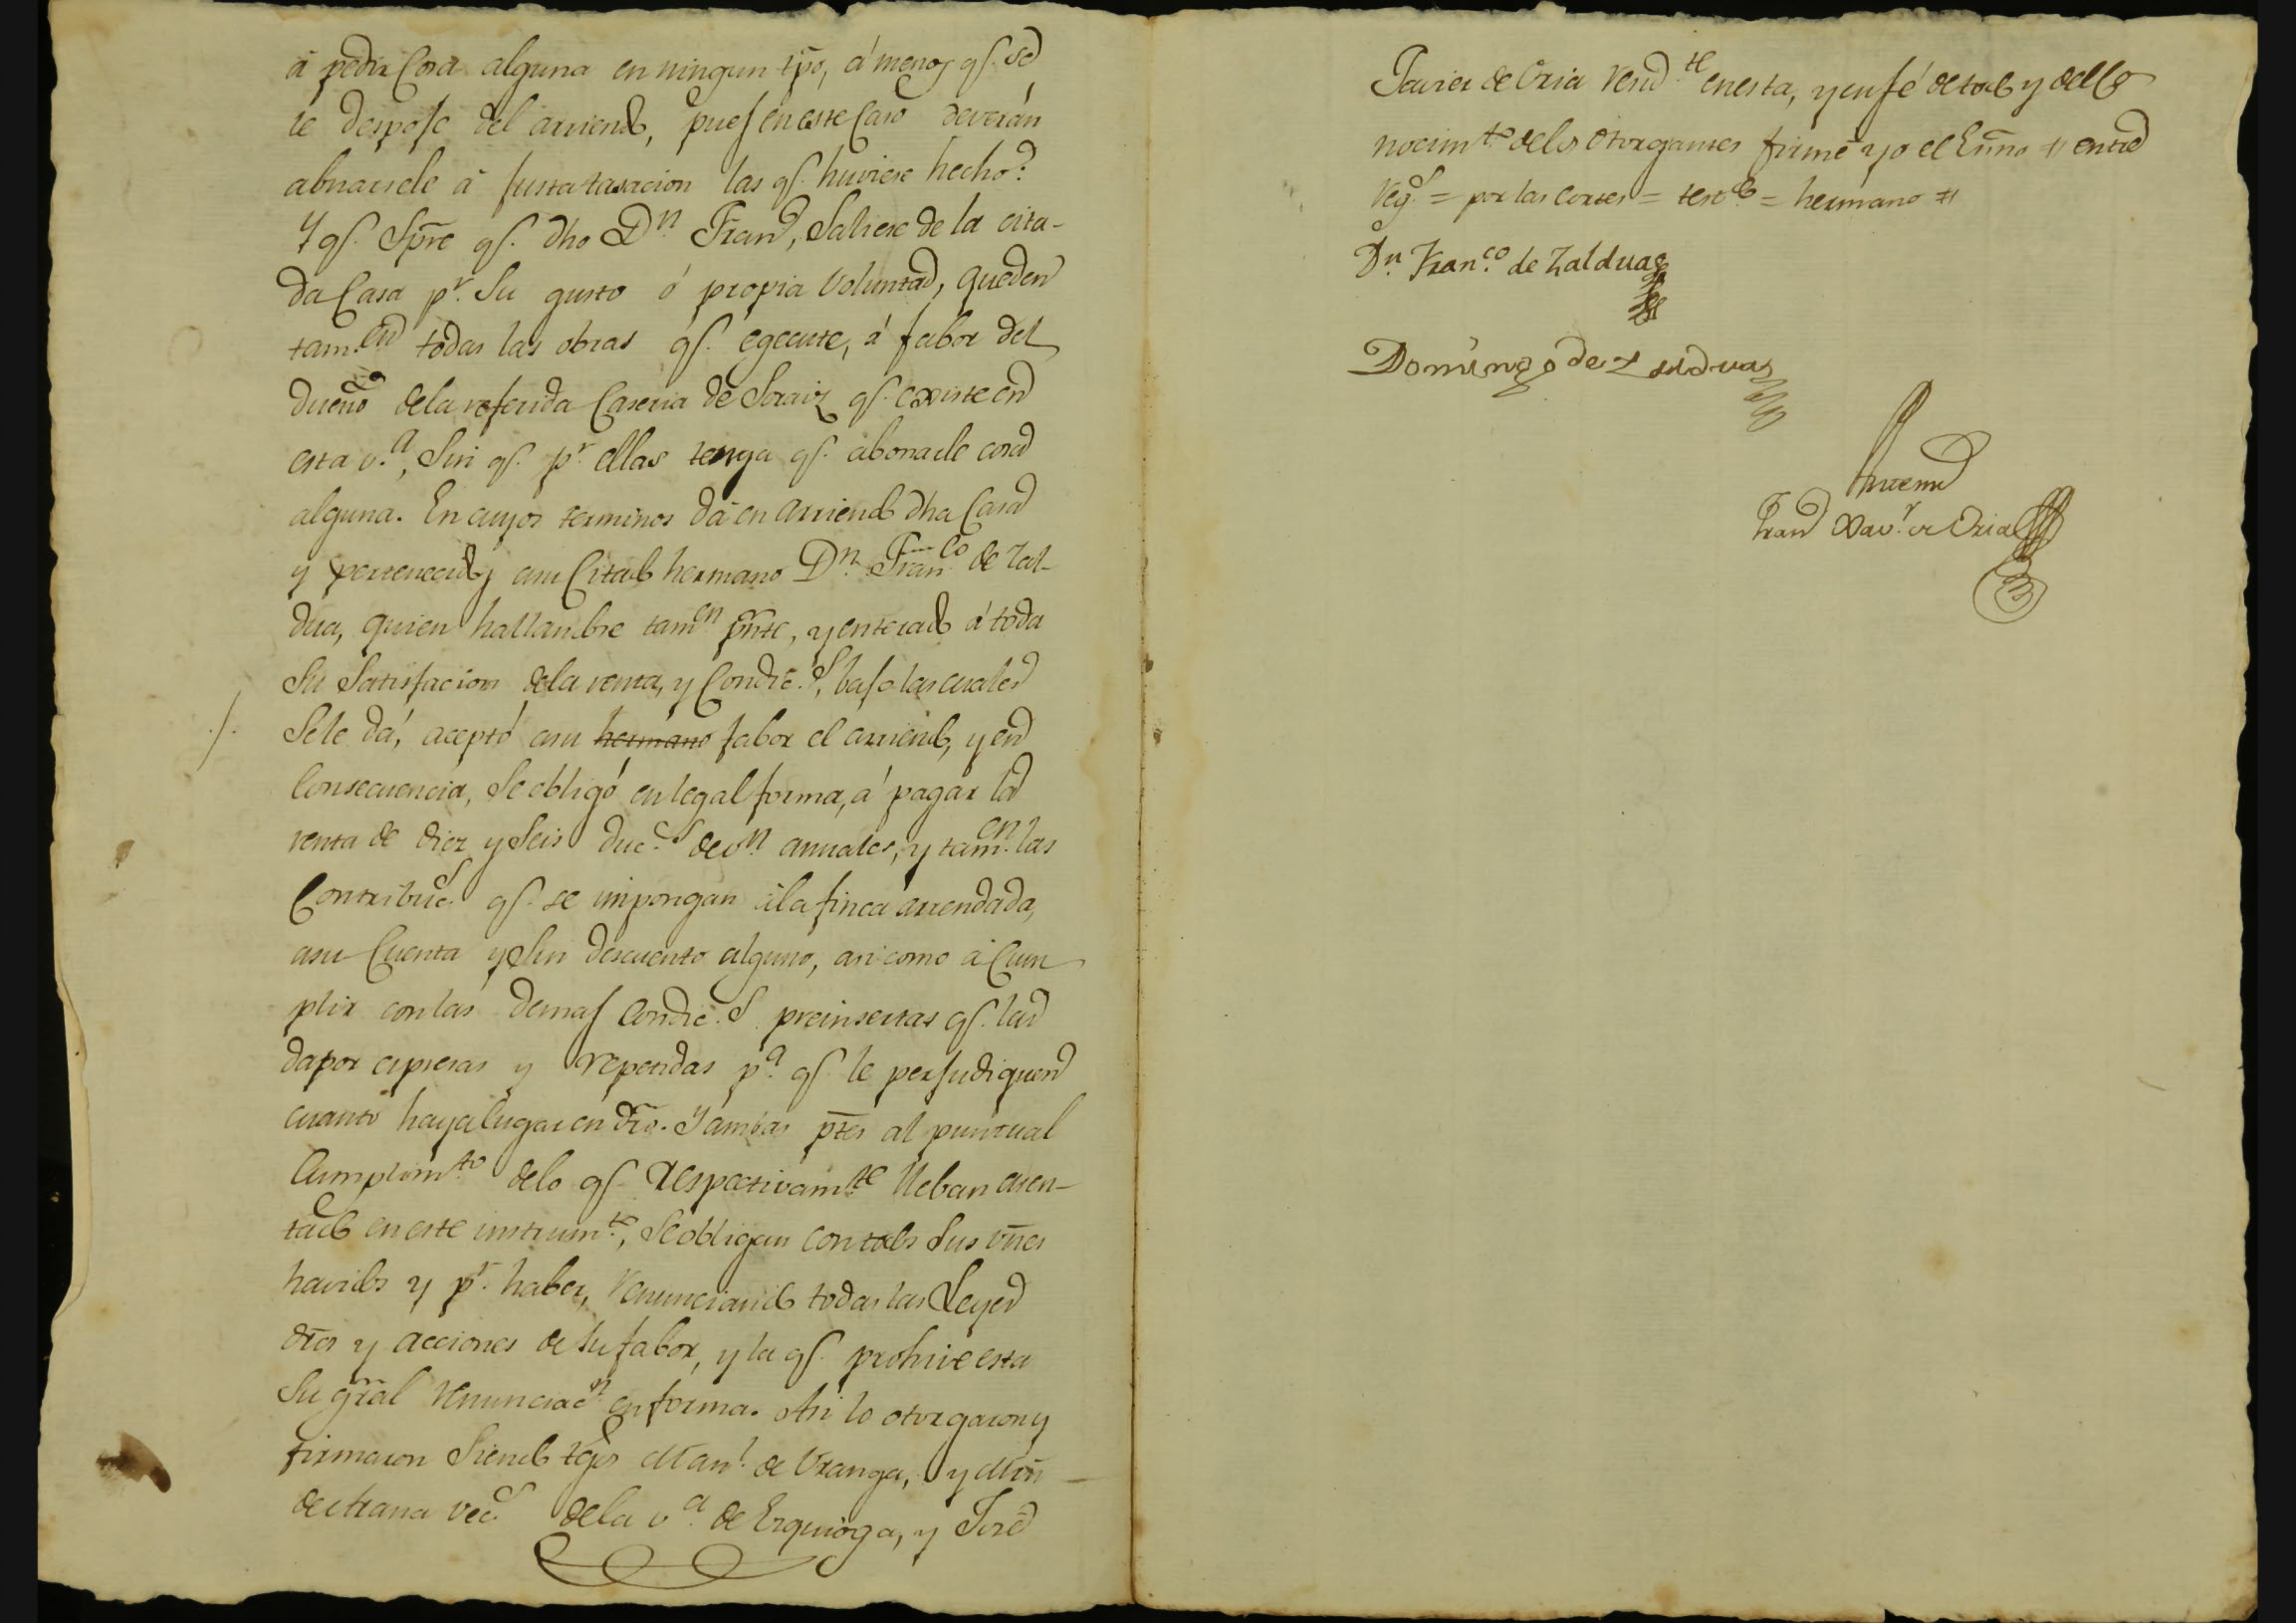 á pedir Cosa alguna en ningun tpō, á menos q.e se
le despoje del arriendo, pues en este Caso deverán
abonarsele á justa tasacion las q.e huviere hecho:
Y q.e Spre q.e dho D.n Fran.co, Saliese de la cita-
da Casa p.r Su gusto ó propia Voluntad, queden
tam.en todas las obras q.e egecute, á fabor del
dueño dela referida Caseria de Soraiz q.e existe en
esta v.a, Sin q.e p.r ellas tenga q.e abonarle cosa
alguna. En cuyos terminos dá en arriendo dha Casa
y pertenecidos asu Citado hermano D.n Fran.co de Zal-
dua, quien hallandose tam.en pñte, y enterado á toda
Su Satisfacion dela renta, y Condic.s, bajo las cuales
Sele dá, aceptó asu hermano fabor el arriendo, y en
Consecuencia, Se obligó en legal forma, á pagar la
renta de diez y Seis duc.s de v.n annuales, y tam.en las
Contribuc.s q.e se impongan ála finca arrendada,
asu Cuenta y Sin descuento alguno, asi como á Cum
plir con las demas Condic.s preinsertas q.e las
da por expresas y repetidas p.a q.e le perjudiquen
cuanto haya lugar en dro. Y ambas ptes al puntual
Cumplim.to delo q.e respectivam.te lleban asen-
tado en este instrum.to, Se obligan con todos Sus vñes
havidos y p.r haber, renunciando todas las Leyes
dros y acciones de su fabor, y la q.e prohive esta
Su gral renunciac.n en forma. Asi lo otorgaron y
firmaron Siendo tgos Man.l de Uranga, y Mrñ
de Arana vec.s dela v.a de Ezquioga, y José
Javier de Oria resid.te en esta, y en fé de todo y del Co
nocim.to delos Otorgantes firmé yo el Esño = entre
reg.s = por las cortes = testdo = hermano =
Dn Fran.co de Zaldua
Domingo de Zaldua
Antemi
Fran.co Xav.r de Oria